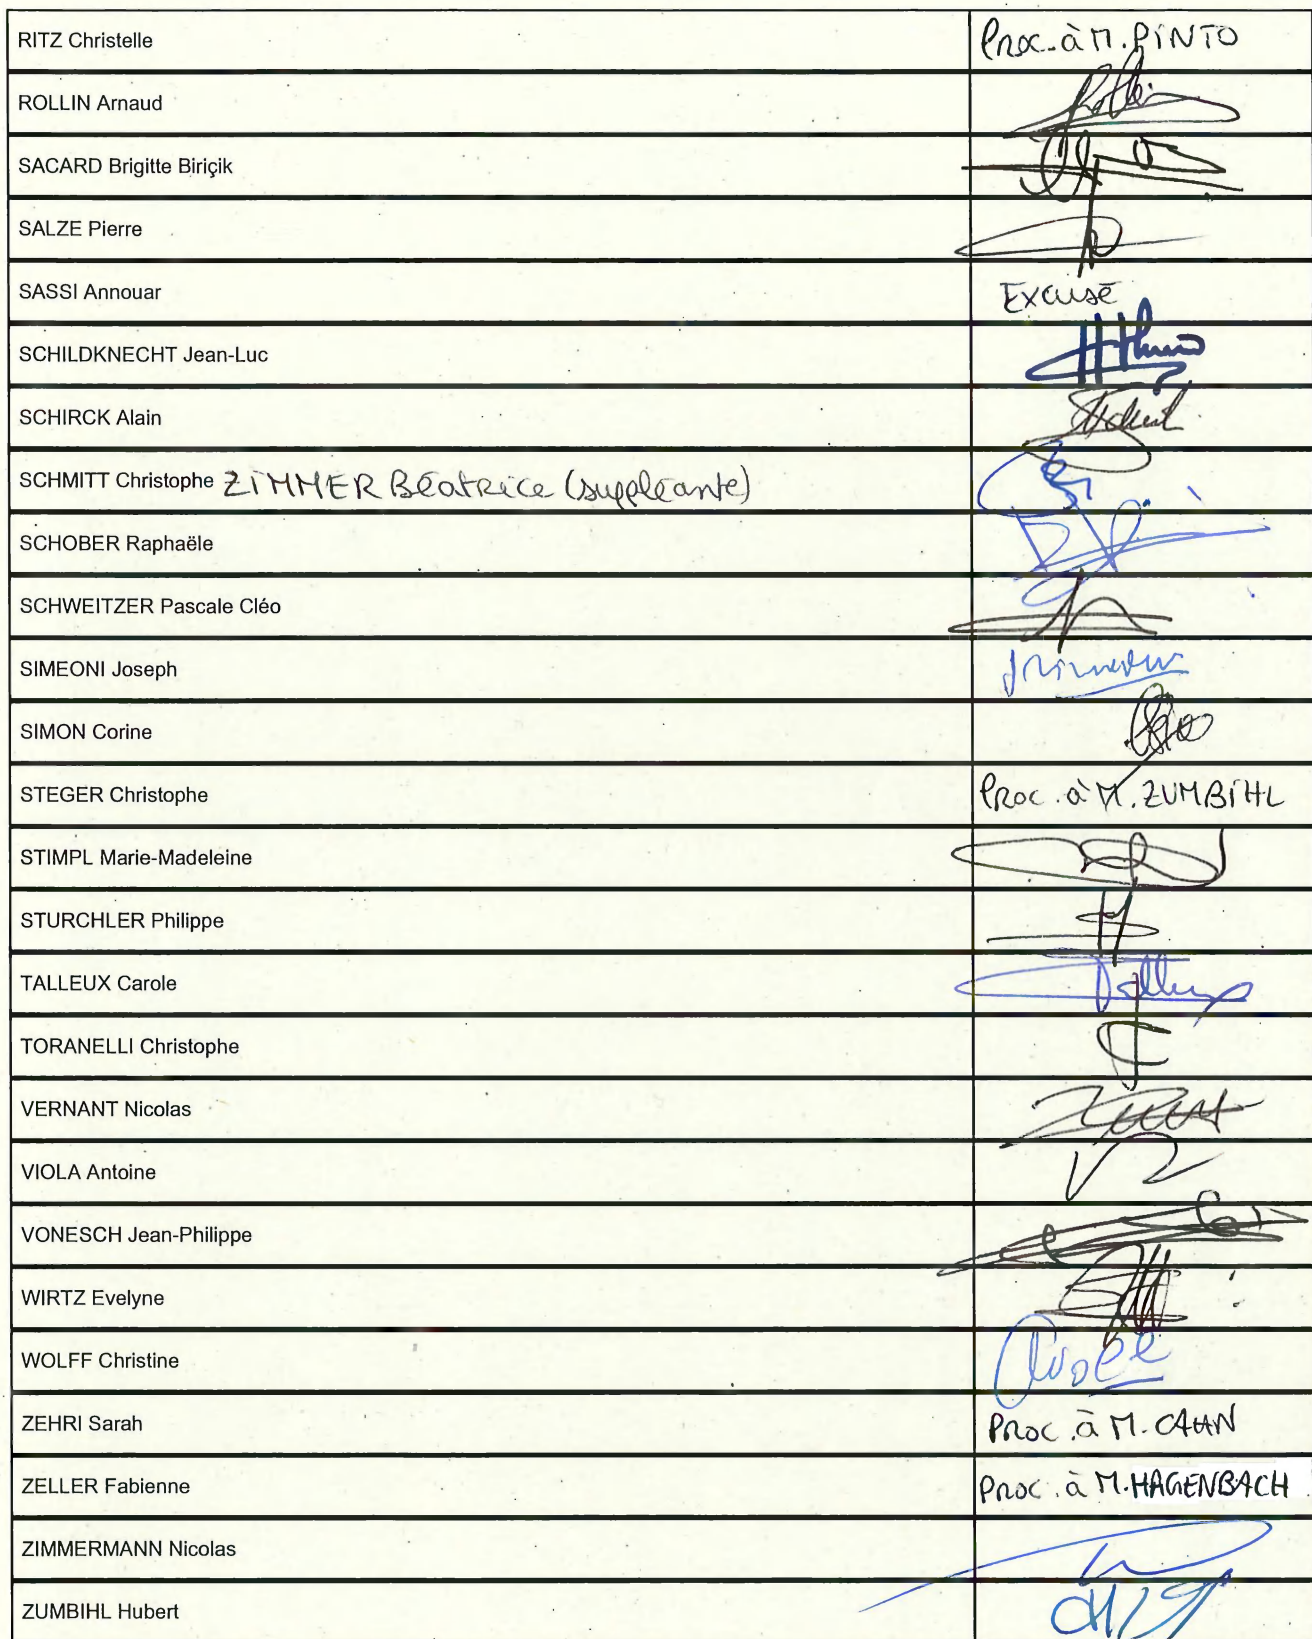 RITZ Christelle Proc. à M. PINTO
ROLLIN Arnaud
SACARD Brigitte Biriçik
SALZE Pierre
SASSI Annouar Excusé
SCHILDKNECHT Jean-Luc
SCHIRCK Alain
SCHMITT Christophe ZIMMER Béatrice (suppléante)
SCHOBER Raphaële
SCHWEITZER Pascale Cléo
SIMEONI Joseph
SIMON Corine
STEGER Christophe Proc. à M. ZUMBIHL
STIMPL Marie-Madeleine
STURCHLER Philippe
TALLEUX Carole
TORANELLI Christophe
VERNANT Nicolas
VIOLA Antoine
VONESCH Jean-Philippe
WIRTZ Evelyne
WOLFF Christine
ZEHRI Sarah Proc. à M. CAHN
ZELLER Fabienne Proc. à M. HAGENBACH
ZIMMERMANN Nicolas
ZUMBIHL Hubert